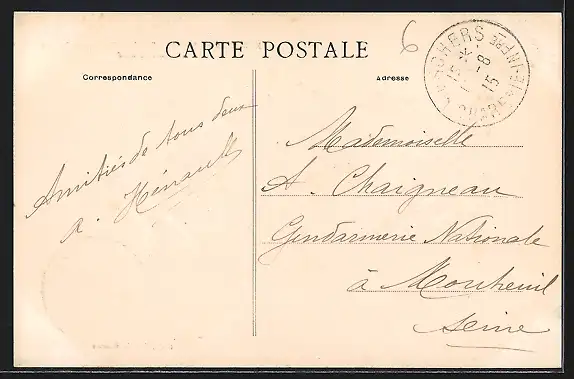 CARTE POSTALE
Correspondance
Adresse
6
15 * -8
15
Amitiés de tous deux
A. Hénault
Mademoiselle
A. Chaigneau
Gendarmerie Nationale
à Montreuil
Seine